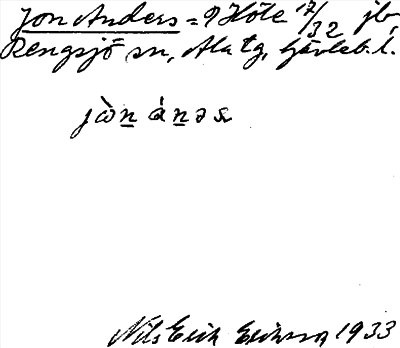 Jon Anders = ? Höle 17/32 jb,
Rengsjö sn, Ala tg, Gävleb. l.
jòn ánəs
Nils Erik Eriksson 1933